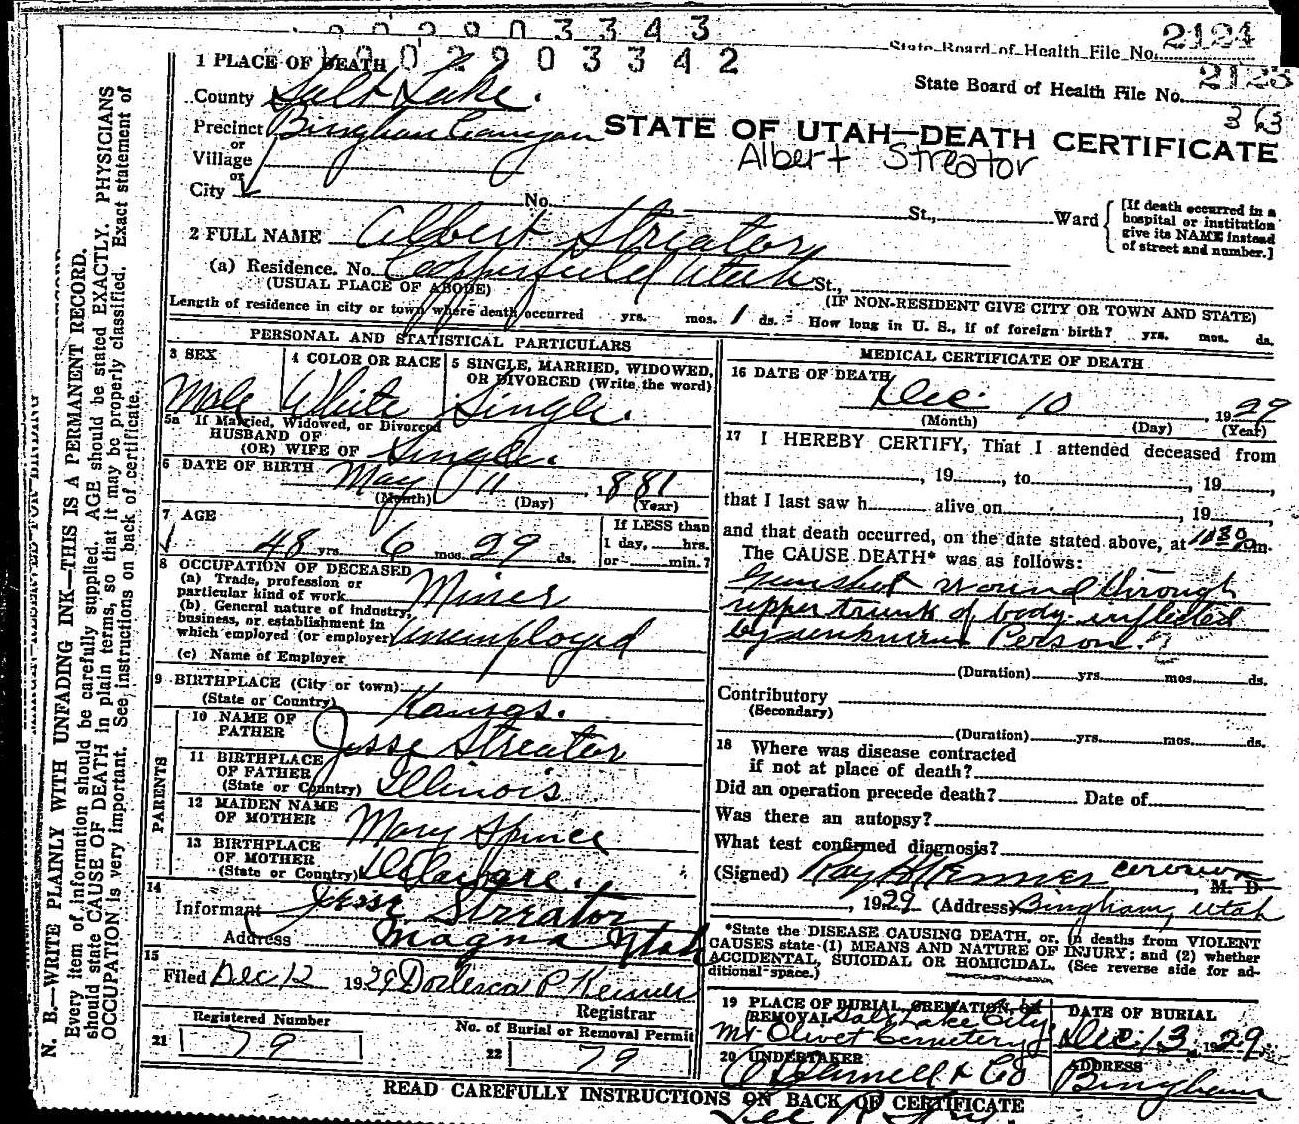 2 9 0 3 3 4 3
State Board of Health File No. 2124
1 9 0 2 9 0 3 3 4 2
1 PLACE OF DEATH
State Board of Health File No. 2123
County Salt Lake.
263
Precinct Bingham Canyon
STATE OF UTAH—DEATH CERTIFICATE
or
Village
Albert Streator
or
City No. St., Ward
[If death occurred in a
hospital or institution
give its NAME instead
of street and number.]
2 FULL NAME Albert Streator
(a) Residence. No. Copperfield Utah St.,
(USUAL PLACE OF ABODE) (IF NON-RESIDENT GIVE CITY OR TOWN AND STATE)
Length of residence in city or town where death occurred yrs. mos. 1 ds. How long in U. S., if of foreign birth? yrs. mos. ds.
PERSONAL AND STATISTICAL PARTICULARS
3 SEX
Male
4 COLOR OR RACE
White
5 SINGLE, MARRIED, WIDOWED,
OR DIVORCED (Write the word)
Single.
5a If Married, Widowed, or Divorced
HUSBAND OF
(OR) WIFE OF Single.
6 DATE OF BIRTH May 11 1881
(Month) (Day) (Year)
7 AGE
48 yrs. 6 mos. 29 ds.
If LESS than
1 day, hrs.
or min.?
8 OCCUPATION OF DECEASED
(a) Trade, profession or
particular kind of work Miner
(b) General nature of industry,
business, or establishment in
which employed (or employer) Unemployed
(c) Name of Employer
9 BIRTHPLACE (City or town)
(State or Country) Kansas.
PARENTS
10 NAME OF
FATHER Jesse Streator
11 BIRTHPLACE
OF FATHER
(State or Country) Illinois
12 MAIDEN NAME
OF MOTHER Mary Spruce
13 BIRTHPLACE
OF MOTHER
(State or Country) Delaware.
14
Informant Jesse Streator
Address Magna Utah
15
Filed Dec 12 1929 P Keiner
Registrar
Registered Number
21 79
No. of Burial or Removal Permit
22 79
MEDICAL CERTIFICATE OF DEATH
16 DATE OF DEATH
Dec. 10 1929
(Month) (Day) (Year)
17 I HEREBY CERTIFY, That I attended deceased from
, 19 , to , 19 ,
that I last saw h alive on , 19 ,
and that death occurred, on the date stated above, at m.
The CAUSE DEATH* was as follows:
Gunshot wound through
upper trunk of body inflicted
by unknown Person. ?
(Duration) yrs. mos. ds.
Contributory
(Secondary)
(Duration) yrs. mos. ds.
18 Where was disease contracted
if not at place of death?
Did an operation precede death? Date of
Was there an autopsy?
What test confirmed diagnosis?
(Signed) Ray H Kenner coroner, M. D.
, 1929 (Address) Bingham, Utah
*State the DISEASE CAUSING DEATH, or, in deaths from VIOLENT
CAUSES state (1) MEANS AND NATURE OF INJURY; and (2) whether
ACCIDENTAL, SUICIDAL OR HOMICIDAL. (See reverse side for ad-
ditional space.)
19 PLACE OF BURIAL CREMATION, OR
REMOVAL Salt Lake City
Mt Olivet Cemetery
DATE OF BURIAL
Dec. 13 1929
20 UNDERTAKER
O'Donnell & Co
ADDRESS
Bingham
READ CAREFULLY INSTRUCTIONS ON BACK OF CERTIFICATE
N. B.—WRITE PLAINLY WITH UNFADING INK—THIS IS A PERMANENT RECORD.
Every item of information should be carefully supplied. AGE should be stated EXACTLY. PHYSICIANS
should state CAUSE OF DEATH in plain terms, so that it may be properly classified. Exact statement of
OCCUPATION is very important. See instructions on back of certificate.